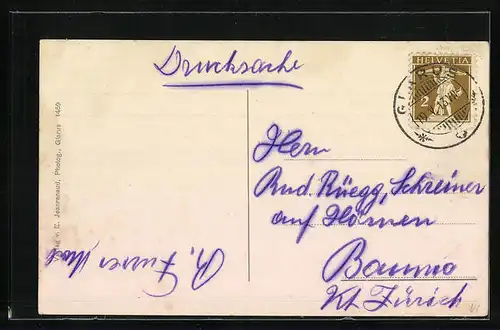 Drucksache
HELVETIA
2
GLARUS
Herrn
Rud. Rüegg, Schreiner
auf Hörnen
Bauma
Kt. Zürich
v. E. Jeanrenaud, Photog., Glarus 1409